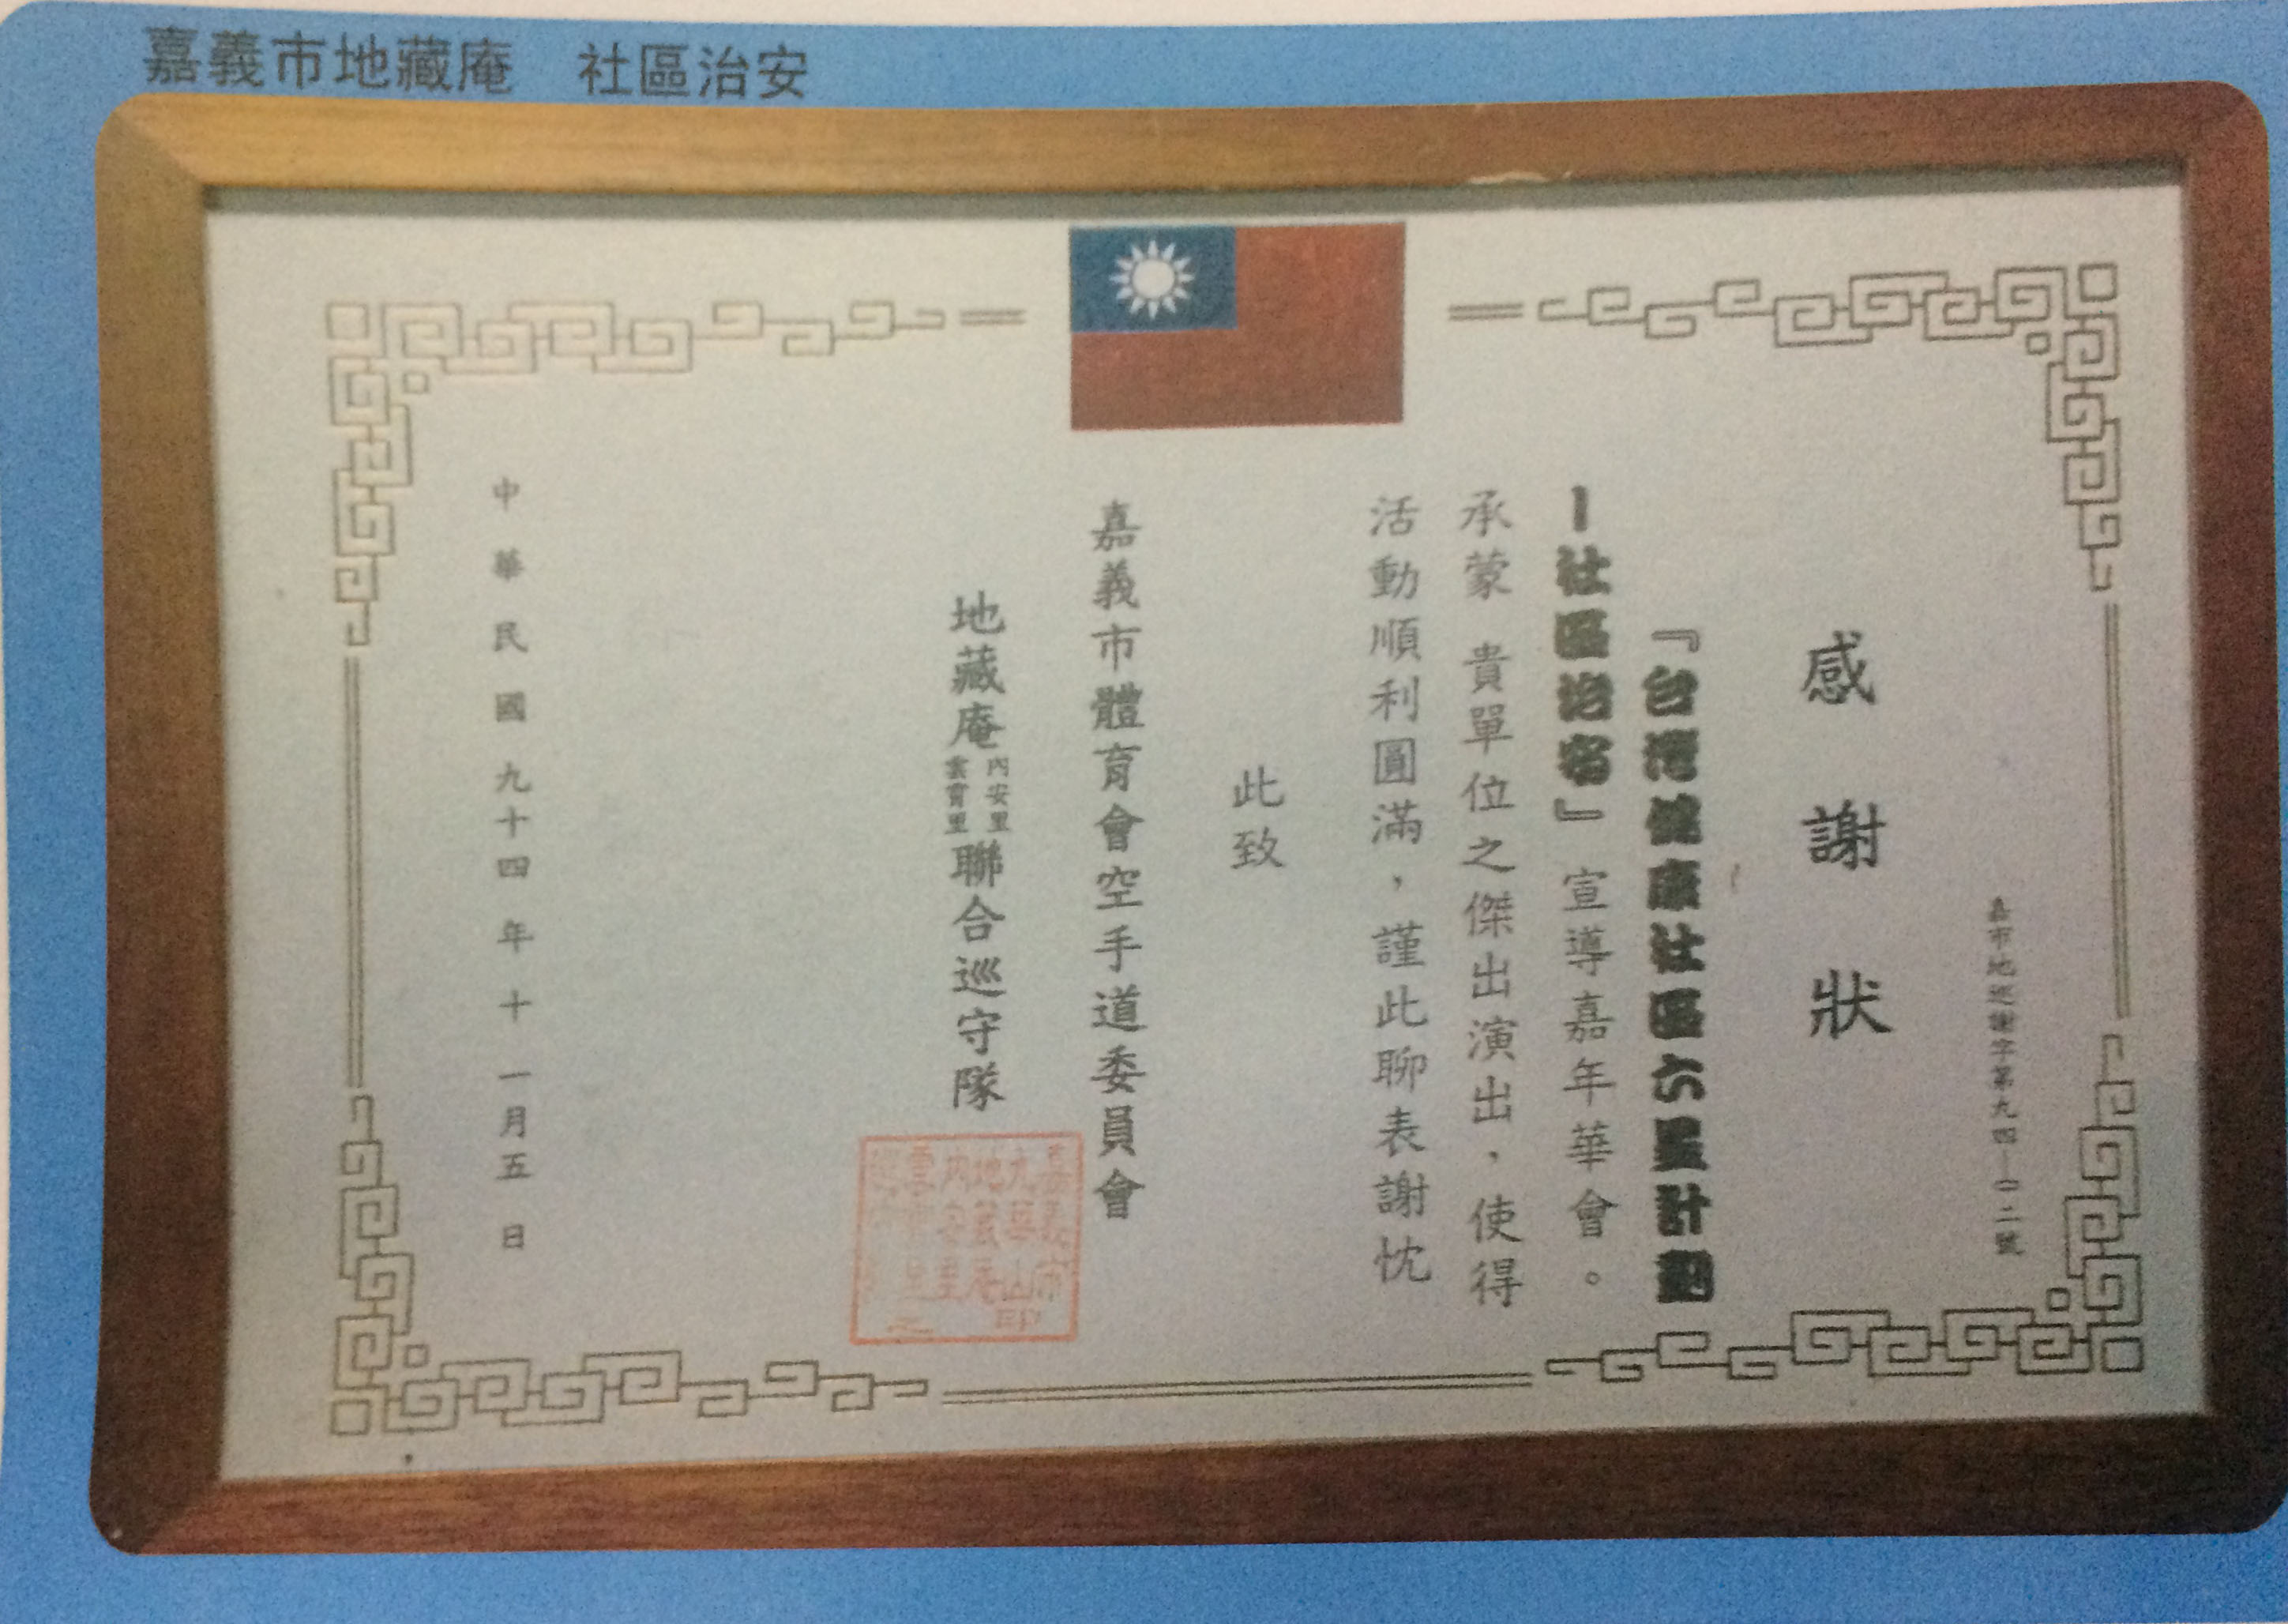 嘉義市地藏庵 社區治安
嘉市地巡謝字第九四—0二號
感謝狀
『台灣健康社區六星計劃
—社區治安』宣導嘉年華會。
承蒙 貴單位之傑出演出，使得
活動順利圓滿，謹此聊表謝忱
此致
嘉義市體育會空手道委員會
地藏庵內安里雲霄里聯合巡守隊
嘉義市
九華山
地藏庵
內安里
中華民國九十四年十一月五日